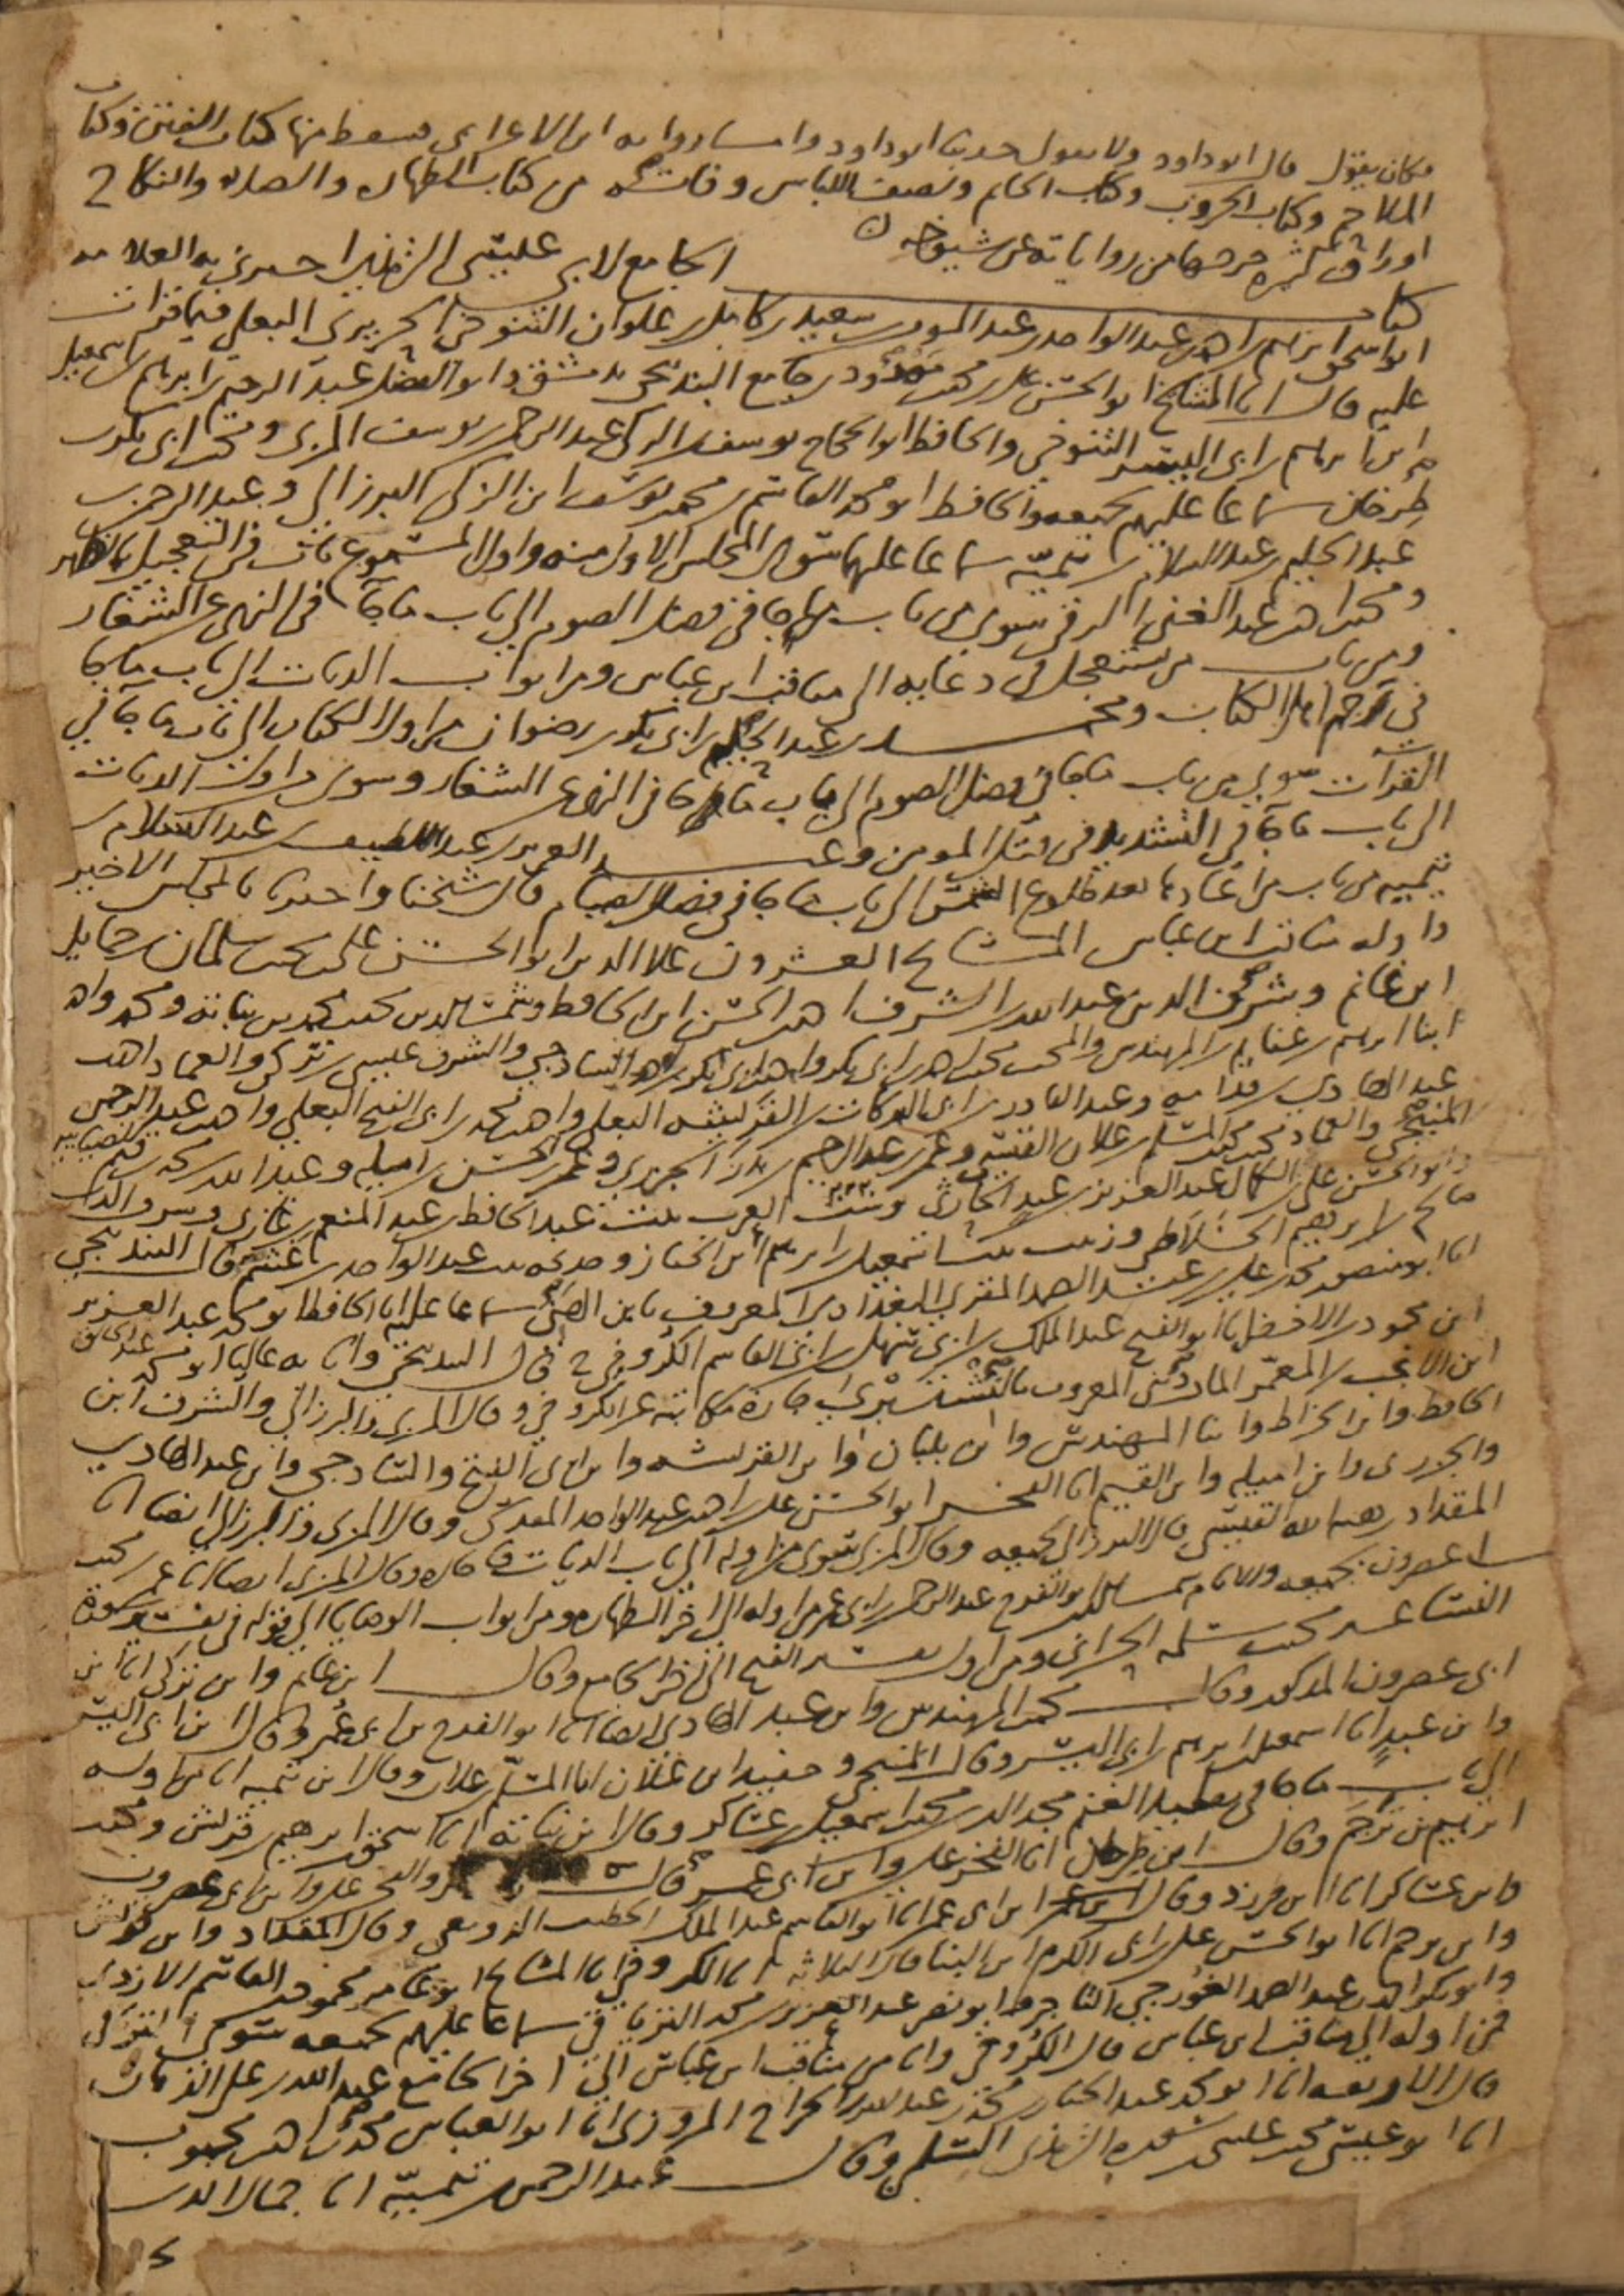 وكان يقول قال ابو داود ولا يقول حدثنا ابو داود واما رواية ابن الاعرابي فسقط منها كتاب الفتن وكتاب
الملاحم وكتاب الحروف وكتاب الخاتم ونصف اللباس وفاته من كتاب الطهارة والصلاة والنكاح
اوراق كثيرة خرجها من رواياته عن شيوخه
كتاب الجامع لابي عيسى الترمذي اخبرني به العلامة
ابو اسحق ابراهيم بن احمد بن عبد الواحد بن عبد المومن بن سعيد بن كامل بن علوان التنوخي الحريري البعلي فيما قرات
عليه قال انا المشايخ ابو الحسن علي بن محمد بن ممدود بن جامع البندنيجي بدمشق وابو الفضل عبد الرحيم بن ابراهيم بن اسمعيل
ابن ابراهيم بن ابي اليسر التنوخي والحافظ ابو الحجاج يوسف بن الزكي عبد الرحمن بن يوسف المزي ومحمد بن ابي بكر بن
طرخان سماعا عليهم بجميعه والحافظ ابو محمد القاسم بن محمد بن يوسف ابن الزكي البرزالي وعبد الرحمن بن
عبد الحليم بن عبد السلام بن تيمية سماعا عليهما سوى المجلس الاول منه واول المسموع باب في التعجيل بالظهر
ومحمد بن احمد بن عبد الغني الرقي سوى من باب ما جا في فضل الصوم الى باب ما جا في النهي عن الشغار
ومن باب من يستعجل في دعايه الى مناقب ابن عباس ومن ابواب الديات الى باب ما جا
في رجم اهل الكتاب ومحمد بن عبد الحليم بن ابي بكر بن رضوان من اول الكتاب الى باب ما جا في
القرآن سوى من باب ما جا في فضل الصوم الى باب ما جا في النهي عن الشغار وسوى من اول الديات
الى باب ما جا في التشديد في قتل المومن وعبد العزيز بن عبد اللطيف بن عبد السلام بن
تيمية من باب من اعادها بعد طلوع الشمس الى باب ما جا في فضل الصيام قال شيخنا واخبرنا بالمجلس الاخير
واوله مناقب ابن عباس المشايخ العشرون علا الدين ابو الحسن علي بن محمد بن سلمان بن حمايل
ابن غانم وشرف الدين عبد الله بن الشرف احمد بن الحسن ابن الحافظ وشمس الدين محمد بن محمد بن نباتة ومحمد واحمد
ابنا ابراهيم بن غنايم بن المهندس والمحب محمد بن احمد بن ابي بكر واحمد بن ابي بكر بن احمد السادجي والشرف عيسى بن تركي والعماد احمد بن
عبد الهادي بن قدامه وعبد القادر بن ابي البركات بن القريشه البعلي واحمد بن محمد بن ابي الفتح البعلي واحمد بن عبد الرحمن
المنبجي والعماد محمد بن محمد بن المسلم بن علان القيسي وعمر بن عبد الرحيم بن بدر الجزري وعمر بن الحسن بن اميله وعبد الله بن محمد بن قيم الضيائيه
وابو الحسن علي بن الكمال عبد العزيز بن عبد الحارثي وست العرب بنت عبد الحافظ بن عبد المنعم بن غازي
صالح بن ابراهيم الخلاطي وزينب بنت اسمعيل بن ابراهيم ابن الخباز وخديجه بنت عبد الواحد قال البندنيجي
انا ابو منصور محمد بن علي بن عبد الصمد المقري البغدادي المعروف بابن الهني سماعا عليه انا الحافظ ابو محمد عبد العزيز
ابن محمود بن الاخضر انا ابو الفتح عبد الملك بن ابي سهل بن ابي القاسم الكروخي ح قال البندنيجي وانا به عاليا ابو محمد عبد الخالق
ابن الانجب بن المعمر المارديني المعروف بالنشتبري اجازة مكاتبة عن الكروخي وقال المزي والبرزالي والشرف ابن
الحافظ وابن الخلاط وابنا المهندس وابن بلبان وابن القريشه وابن ابي الفتح والسادجي وابن عبد الهادي
والجزري وابن اميله وابن القيم انا الفخر ابو الحسن علي بن احمد بن عبد الواحد المقدسي وقال المزي والبرزالي ايضا انا
المقداد بن هبة الله القيسي قال البرزالي بجميعه وقال المزي سوى من اوله الى باب الديات وقال المزي ايضا انا عمر بن محمد
ابن عصرون بجميعه والامام شمس الدين ابو الفرج عبد الرحمن بن ابي عمر من اوله الى اخر الطهارة ومن ابواب الوصايا الى قوله في تفسير سورة
النسا
محمد بن سلمه الحراني ومن اول تفسير الفتح الى اخر الجامع وقال ابن غانم وابن تركي انا ابن
ابي عصرون المذكور وقال محمد بن المهندس وابن عبد الهادي ايضا انا ابو الفرج بن ابي عمر وقال ابن ابي اليسر
وابن عبيد انا اسمعيل بن ابراهيم بن ابي اليسر وقال المنبجي وحفيد ابن علان انا المسلم بن علان وقال ابن تيميه انا من اوله
الى باب ما جا في تقليد الغنم مجد الدين محمد بن اسمعيل بن عساكر وقال ابن نباته انا اسحق بن ابراهيم بن قريش ومحمد بن
ابراهيم بن ترجم وقال ابن طرخان انا الفخر علي وابن ابي عمر قال الفخر علي وابن ابي عصرون
وابن عساكر انا ابن طبرزد وقال ابن ابي عمر انا ابو القاسم عبد الملك الخطيب الدولعي وقال المقداد وابن قريش
وابن ترجم انا ابو الحسن علي بن ابي الكرم ابن البنا قال الثلاثه انا الكروخي انا المشايخ ابو عامر محمود بن القاسم الازدي
وابو بكر احمد بن عبد الصمد الغورجي التاجر وابو نصر عبد العزيز بن محمد الترياقي سماعا عليهم بجميعه سوى الترياقي
فمن اوله الى مناقب ابن عباس قال الكروخي وانا من مناقب ابن عباس الى اخر الجامع عبد الله بن علي الدهان
قال الاربعه انا ابو محمد عبد الجبار بن محمد بن عبد الله الجراحي المروزي انا ابو العباس محمد بن احمد بن محبوب
انا ابو عيسى محمد بن عيسى بن سوره الترمذي السلمي وقال عبد الرحمن بن تيميه انا جمال الدين